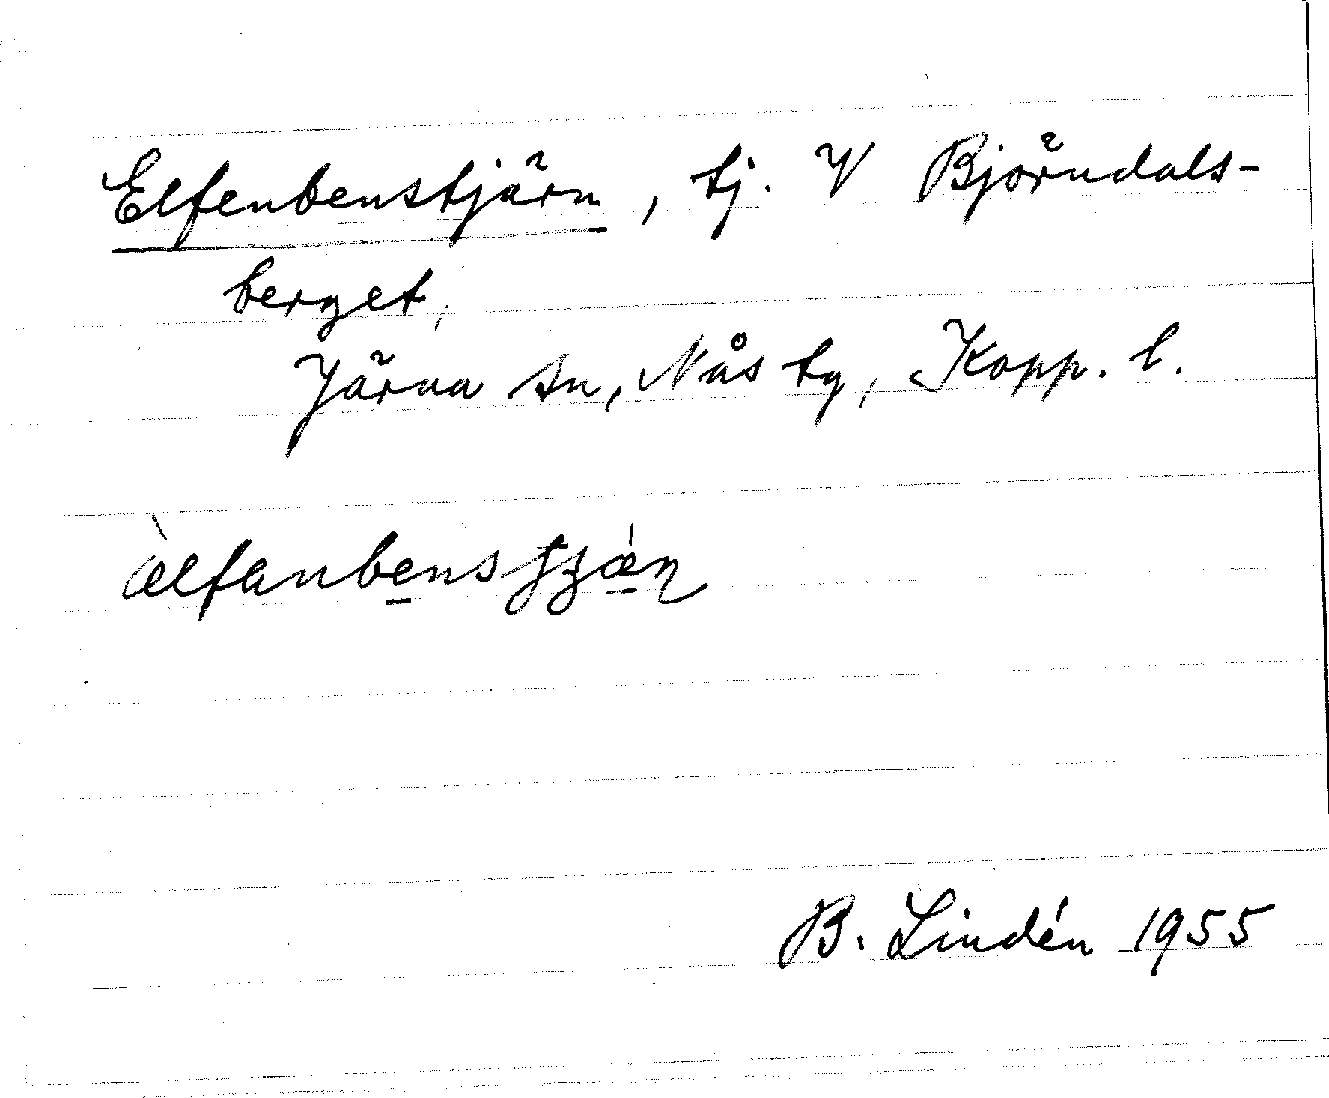 Elfenbenstjärn, tj. V Björndals-
berget,
Järna sn, Nås tg, Kopp. l.
B. Lindén 1955